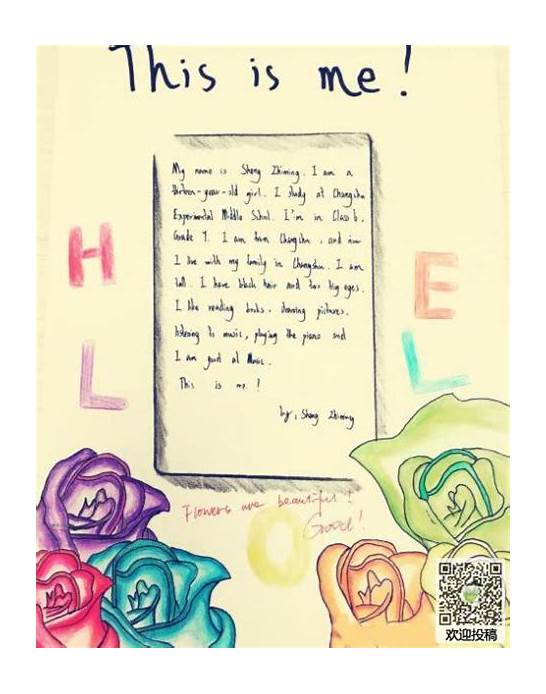 This is me!
My name is Sheng Zhiming. I am a
thirteen-year-old girl. I study at Changsha
Experimental Middle School. I'm in Class 6,
Grade 7. I am from Changsha, and now
I live with my family in Changsha. I am
tall. I have black hair and two big eyes.
I like reading books, drawing pictures,
listening to music, playing the piano and
I am good at Music.
This is me!
by, Sheng Zhiming
H E
L L
O
Flowers are beautiful!
Good!
欢迎投稿